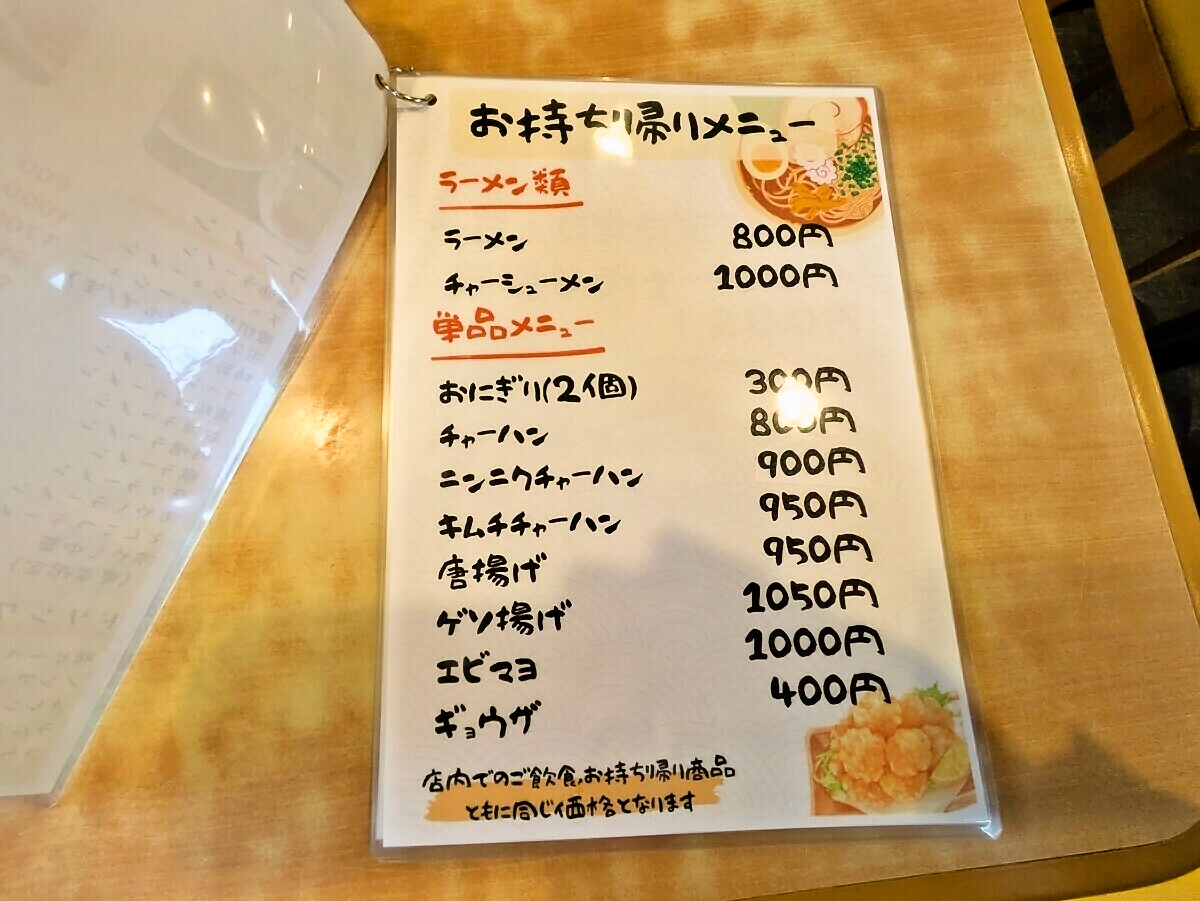 お持ち帰りメニュー
ラーメン類
ラーメン 800円
チャーシューメン 1000円
単品メニュー
おにぎり(2個) 300円
チャーハン 800円
ニンニクチャーハン 900円
キムチチャーハン 950円
唐揚げ 950円
ゲソ揚げ 1050円
エビマヨ 1000円
ギョウザ 400円
店内でのご飲食、お持ち帰り商品
ともに同じ価格となります